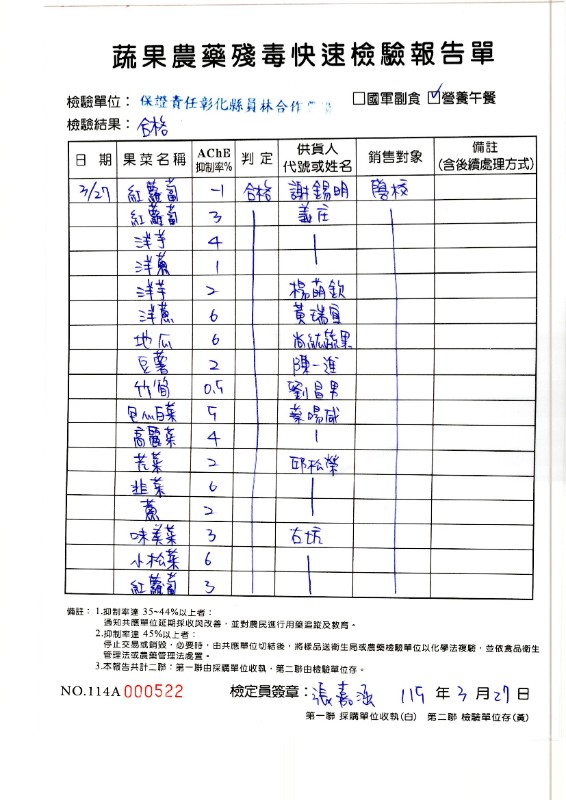 蔬果農藥殘毒快速檢驗報告單
檢驗單位：保證責任彰化縣員林合作農場 □國軍副食 ☑營養午餐
檢驗結果：合格
日期 果菜名稱 AChE抑制率% 判定 供貨人代號或姓名 銷售對象 備註(含後續處理方式)
3/27 紅蘿蔔 -1 合格 謝錫明 學校
紅蘿蔔 3 義庄
洋芋 4
洋蔥 1
洋芋 2 楊萌欽
洋蔥 6 黃瑞
地瓜 6 蔬果
豆薯 2 陳一進
竹筍 0.5 劉昌男
包心白菜 5
高麗菜 4
芥菜 2 邱松榮
韭菜 6
蔥 2
味美菜 3 右坑
小松菜 6
紅蘿蔔 3
備註：1.抑制率達 35~44%以上者：
通知共應單位延期採收與改善，並對農民進行用藥追蹤及教育。
2.抑制率達 45%以上者：
停止交易或銷毀，必要時，由共應單位切結後，將樣品送衛生局或農藥檢驗單位以化學法複驗，並依食品衛生
管理法或農藥管理法處置。
3.本報告共計二聯：第一聯由採購單位收執，第二聯由檢驗單位存。
NO.114A 000522 檢定員簽章：張嘉 115 年 3 月 27 日
第一聯 採購單位收執(白) 第二聯 檢驗單位存(黃)